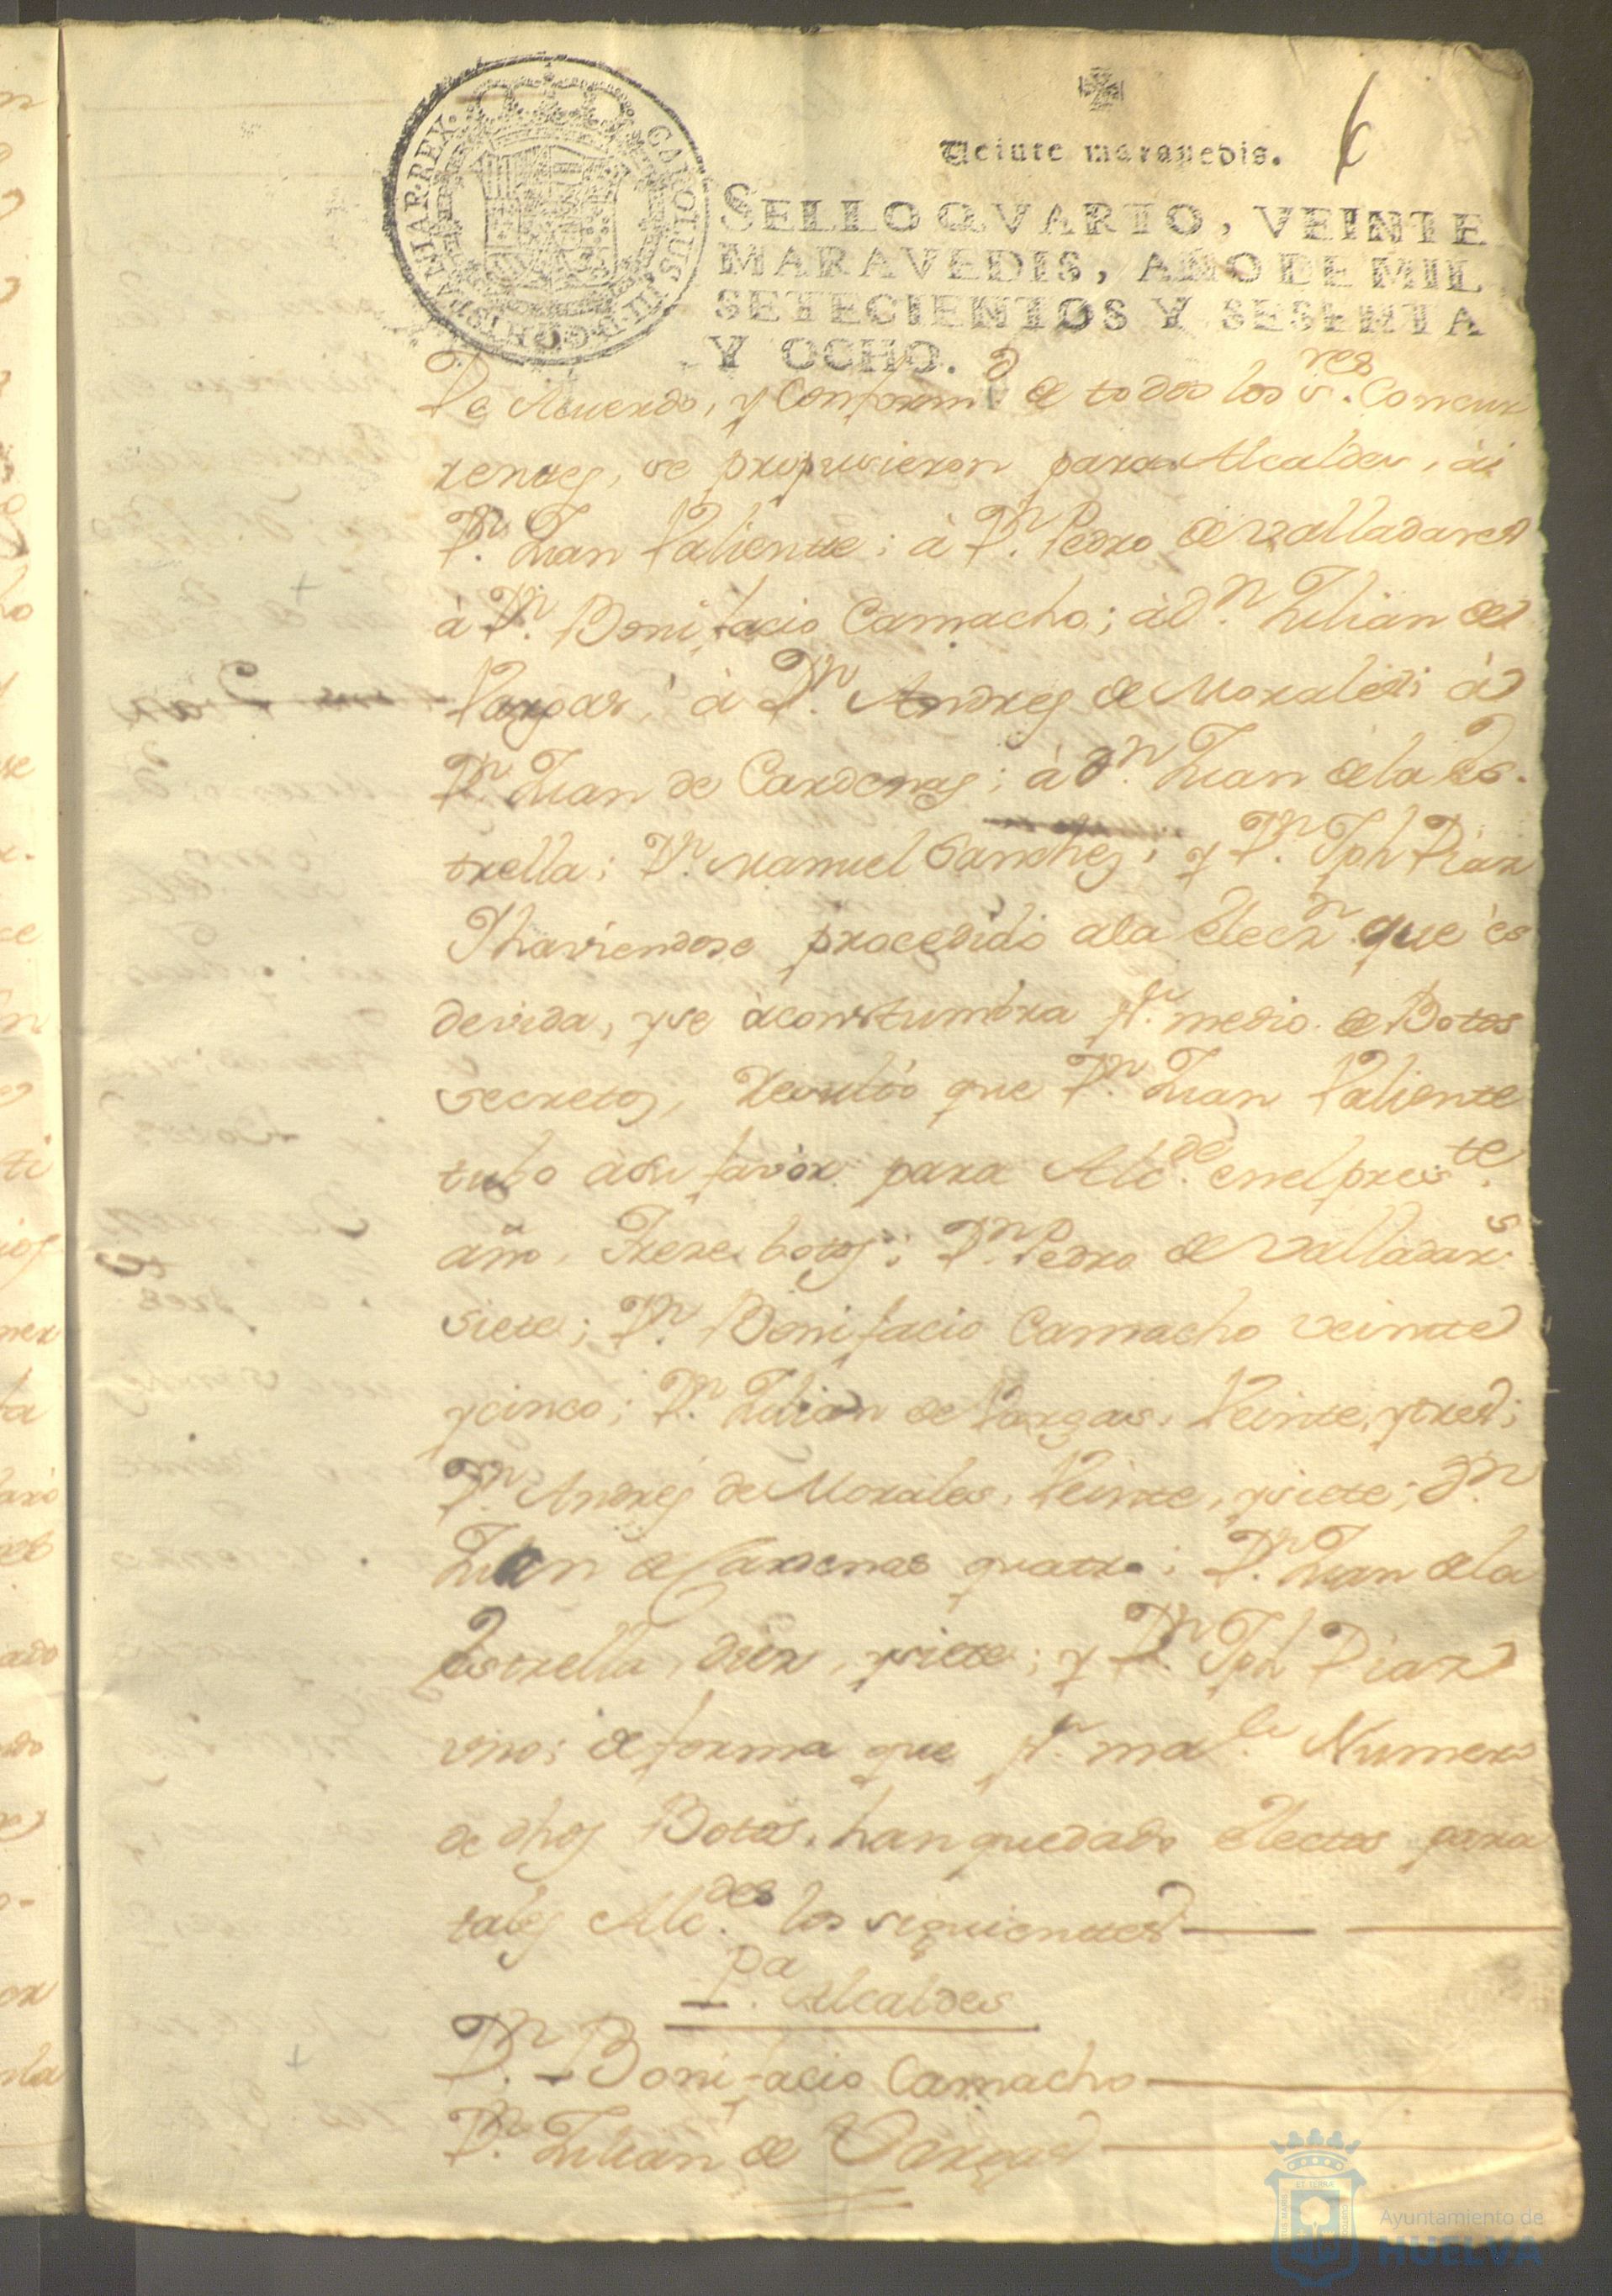 Veinte maravedis.
6
SELLO QVARTO, VEINTE
MARAVEDIS, AÑO DE MIL
SETECIENTOS Y SESENTA
Y OCHO.
CAROLUS III D G HISPANIAR REX
De Acuerdo, y Conformd de todos los Sres. Concur
rentes, se propusieron para Alcaldes, à
Dn. Juan Valiente; à Dn. Pedro de Valladares
à Dn. Bonifacio Camacho; à Dn. Julian de
Vargas; à Dn. Andres de Morales; à
Dn. Juan de Cardenas; à Dn. Juan dela Es-
trella; Dn. Manuel Sanchez; y Dn. Jph Diaz
Y haviendose procedido ala Elecn. que es
devida, y se àcostumbra pr. medio de Botos
Secretos, Resultò que Dn. Juan Valiente
tubo àsu favòr para Alcde. enel preste.
año, Treze botos; Dn. Pedro de Valladars.
siete; Dn. Bonifacio Camacho veinte
y cinco; Dn. Julian de Vargas, Veinte, y tres;
Dn. Andrés de Morales, Veinte, y siete; Dn.
Juan de Cardenas quatro; Dn. Juan dela
Estrella, diez, y siete; y Dn. Jph Diaz
uno; de forma que pr. Numero
de dhos Botos, han quedado Electos para
tales Alcdes. los siguientes
Pa. Alcaldes
Dn. Bonifacio Camacho
Dn. Julian de Vargas
Ayuntamiento de
HUELVA